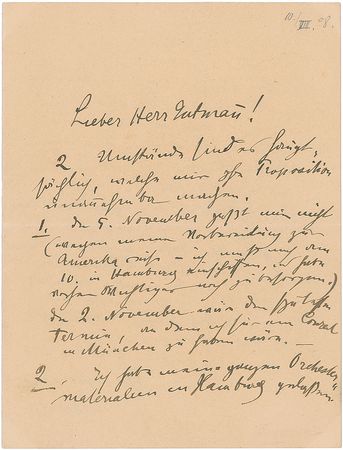 10/VII. 08.
Lieber Herr Gutmann!
2 Umstände sind es haupt-
sächlich, welche mir die Proposition
unannehmbar machen.
1. den 5. November passt mir nicht
(wegen meiner Vorbereitung zur
Amerika reise – ich muß mich am
10. in Hamburg einschiffen, u. habe
noch Wichtiges noch zu besorgen.)
der 2. November wäre der späteste
Termin, an dem ich für ein Conzert
in München zu haben wäre. –
2. Ich habe meine ganzen Orchester
materialien in Hamburg gelassen